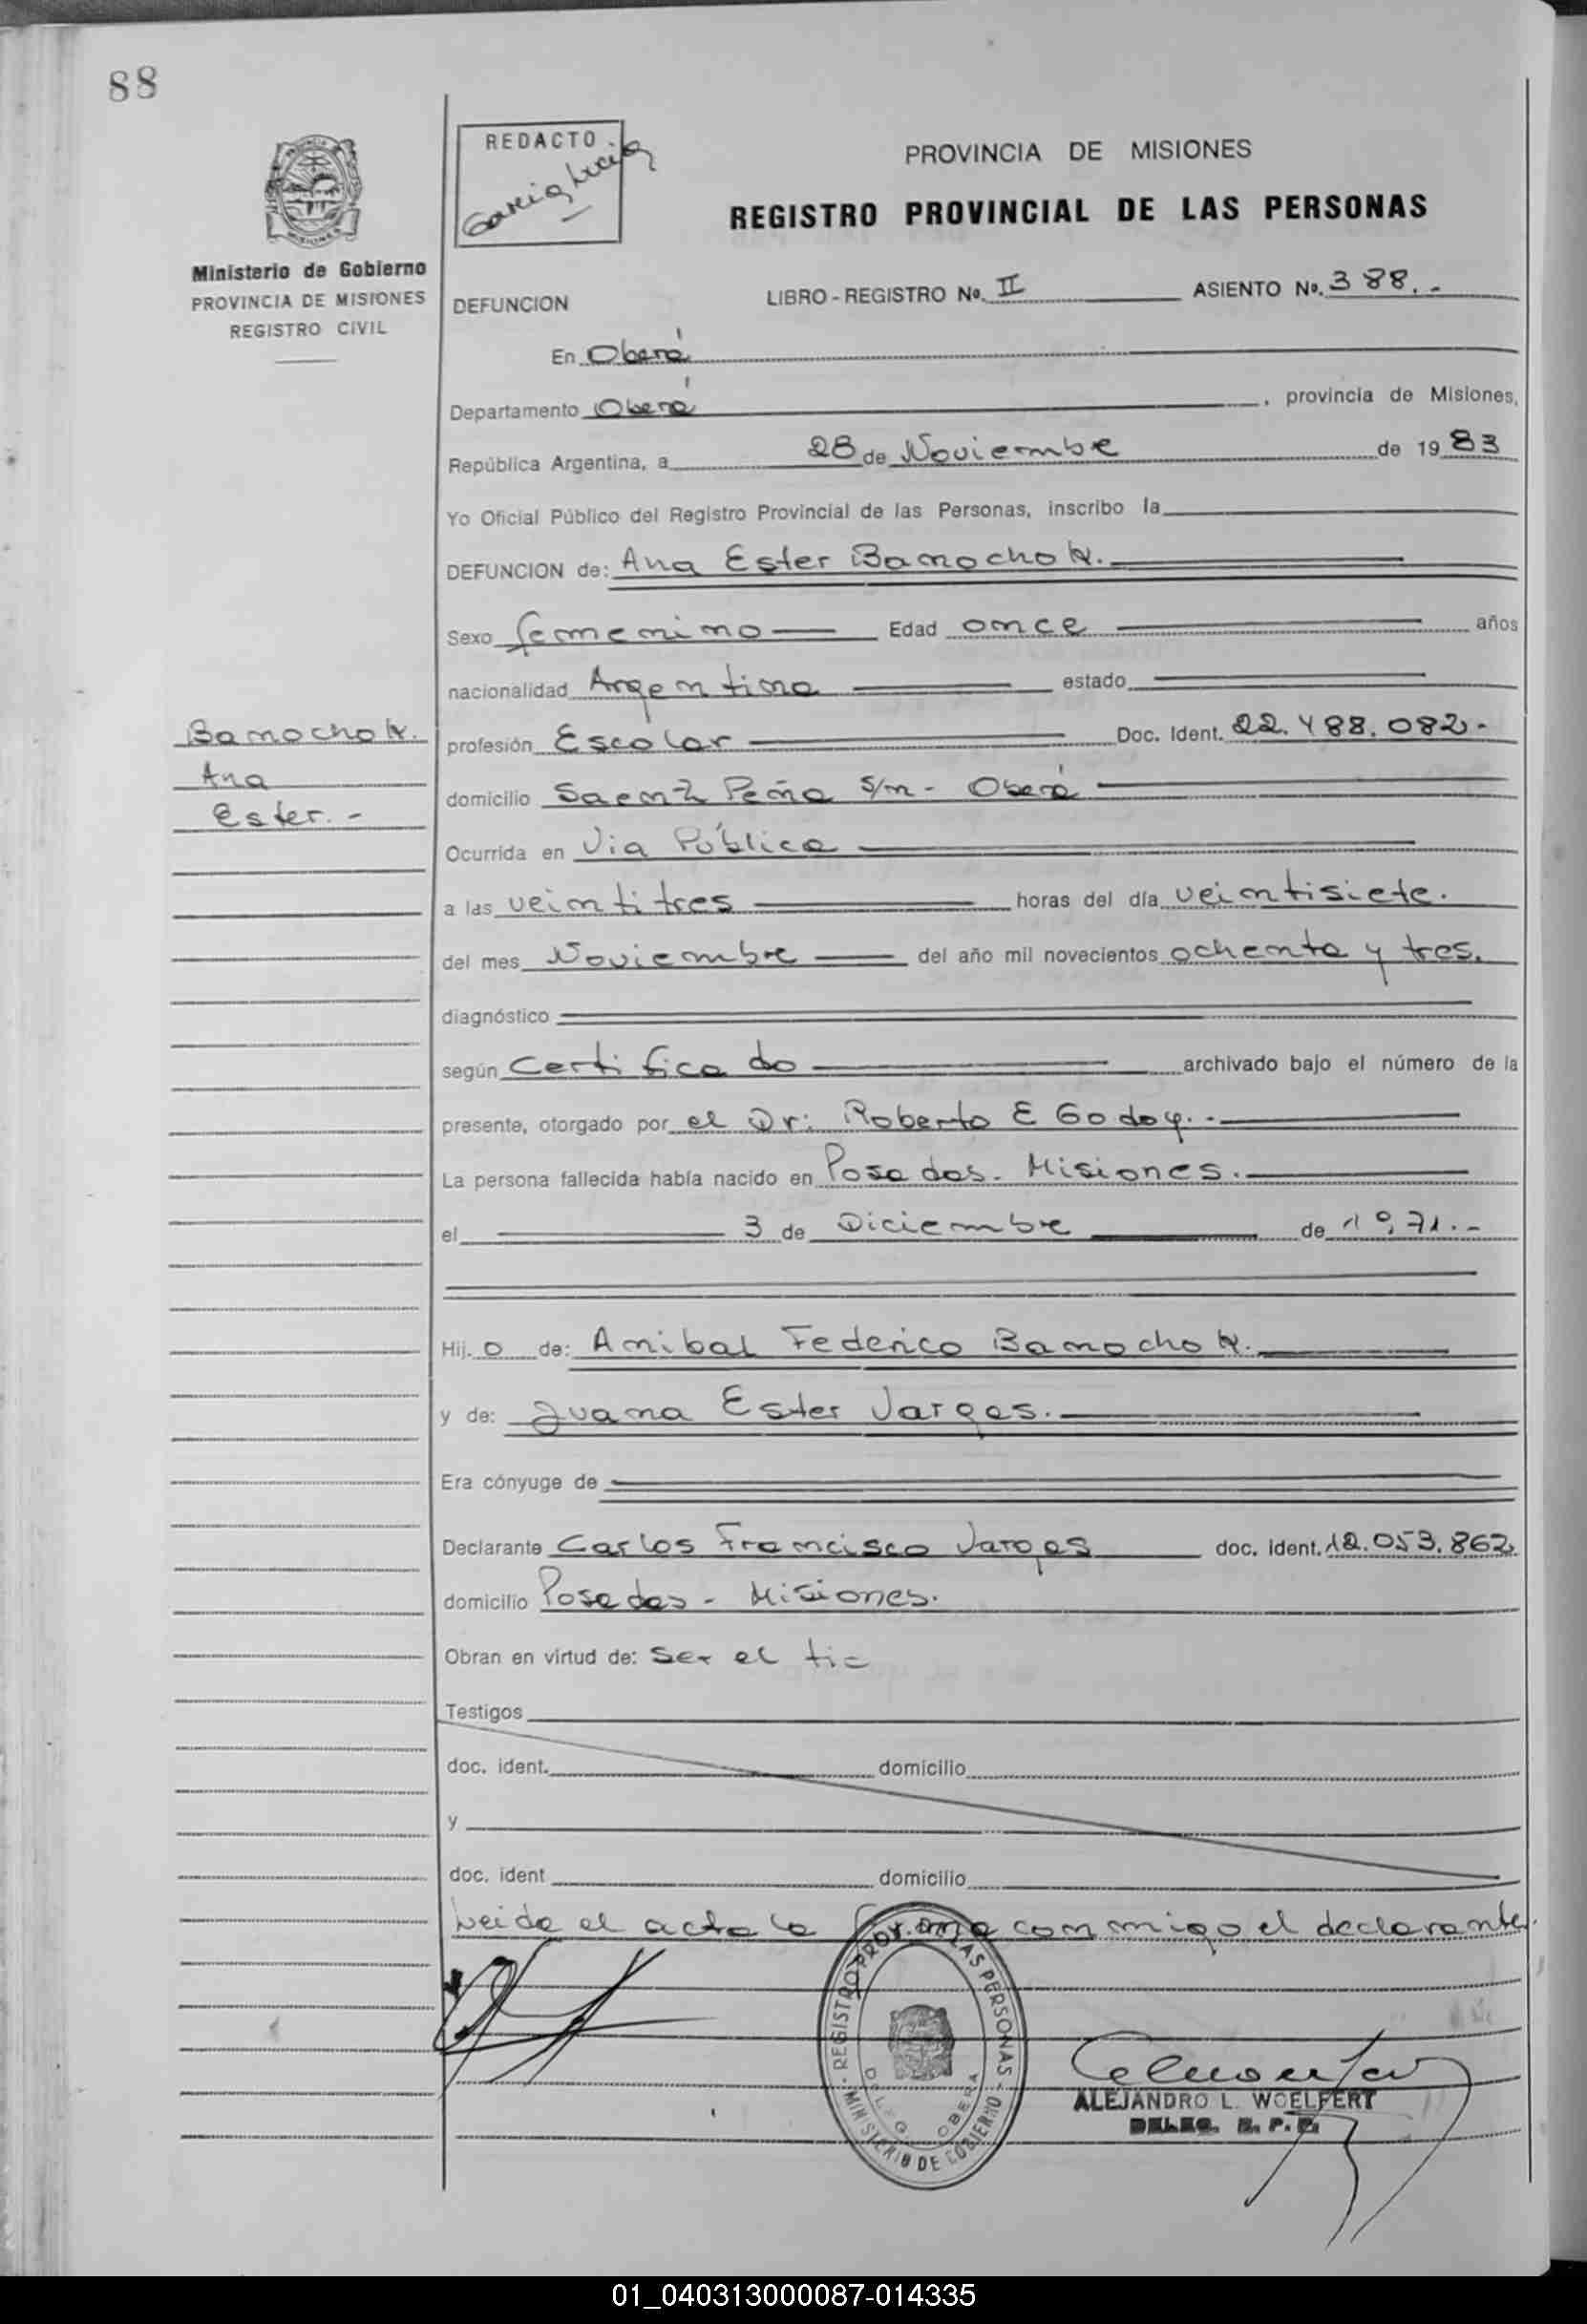 88
REDACTO
Garcia Lucia
PROVINCIA DE MISIONES
REGISTRO PROVINCIAL DE LAS PERSONAS
Ministerio de Gobierno
PROVINCIA DE MISIONES
REGISTRO CIVIL
DEFUNCION LIBRO-REGISTRO No. II ASIENTO No. 388.-
En Oberá
Departamento Oberá, provincia de Misiones,
República Argentina, a 28 de Noviembre de 1983
Yo Oficial Público del Registro Provincial de las Personas, inscribo la
DEFUNCION de: Ana Ester Bamochok.
Sexo femenino Edad once años
nacionalidad Argentina estado
Bamochok.
Ana
Ester.-
profesión Escolar Doc. Ident. 22.488.082-
domicilio Saenz Peña s/n - Oberá
Ocurrida en Via Pública
a las veintitres horas del día veintisiete.
del mes Noviembre del año mil novecientos ochenta y tres.
diagnóstico
según Certificado archivado bajo el número de la
presente, otorgado por el Dr: Roberto E Godoy.-
La persona fallecida había nacido en Posadas - Misiones.
el 3 de Diciembre de 1971.-
Hij.o de: Anibal Federico Bamochok.
y de: Juana Ester Vargas.
Era cónyuge de
Declarante Carlos Francisco Vargas doc. ident. 12.053.862
domicilio Posadas - Misiones.
Obran en virtud de: Ser el tio
Testigos
doc. ident. domicilio
y
doc. ident domicilio
Leida el acta la firma conmigo el declarante.
REGISTRO PROV. DE LAS PERSONAS - MINISTERIO DE GOBIERNO -
DELEG. OBERA
ALEJANDRO L. WOELFERT
DELEG. R. P. P.
01_040313000087-014335